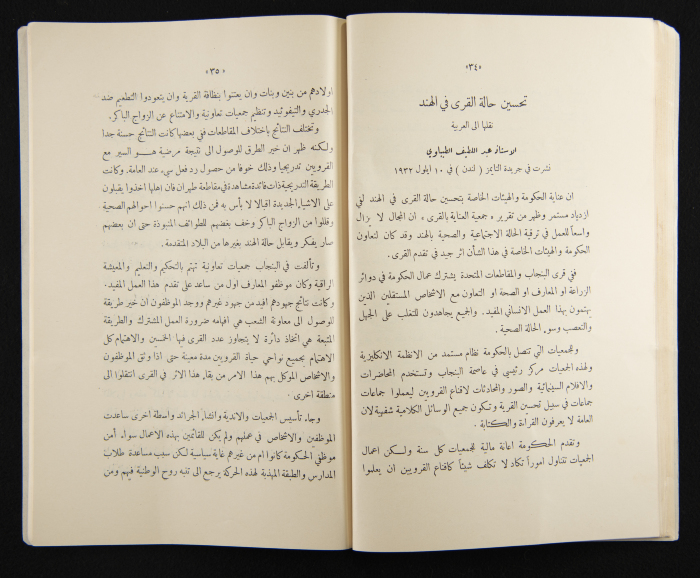 «٣٤»
تحسين حالة القرى في الهند
نقلها الى العربية
الاستاذ عبد اللطيف الطيباوي
نشرت في جريدة التايمز ( لندن ) في ١٠ ايلول ١٩٣٢
ان عناية الحكومة والهيئات الخاصة بتحسين حالة القرى في الهند في
ازدياد مستمر وظهر من تقرير « جمعية العناية بالقرى » ان المجال لا يزال
واسعاً للعمل في ترقية الحالة الاجتماعية والصحية بالهند وقد كان لتعاون
الحكومة والهيئات الخاصة في هذا الشأن اثر جيد في تقدم القرى.
ففي قرى البنجاب والمقاطعات المتحدة يشترك عمال الحكومة في دوائر
الزراعة او المعارف او الصحة او التعاون مع الاشخاص المستقلين الذين
يهتمون بهذا العمل الانساني المفيد. والجميع يجاهدون للتغلب على الجهل
والتعصب وسوء الحالة الصحية.
وللجمعيات التي تتصل بالحكومة نظام مستمد من الانظمة الانكليزية
ولهذه الجمعيات مركز رئيسي في عاصمة البنجاب وتستخدم المحاضرات
والافلام السينمائية والصور والمحادثات لاقناع القرويين ليعملوا جماعات
جماعات في سبيل تحسين القرية وتكون جميع الوسائل الكلامية شفهية لان
العامة لا يعرفون القراءة والكتابة.
وتقدم الحكومة اعانة مالية للجمعيات كل سنة ولكن اعمال
الجمعيات تتناول اموراً تكاد لا تكلف شيئاً كاقناع القرويين ان يعلموا
«٣٥»
اولادهم من بنين وبنات وان يعتنوا بنظافة القرية وان يتعودوا التطعيم ضد
الجدري والتيفوئيد وتنظيم جمعيات تعاونية والامتناع عن الزواج الباكر.
وتختلف النتائج باختلاف المقاطعات ففي بعضها كانت النتائج حسنة جدا
ولكنه ظهر ان خير الطرق للوصول الى نتيجة مرضية هو السير مع
القرويين تدريجيا وذلك خوفا من حصول رد فعل سيء عند العامة. وكانت
الطريقة التدريجية ذات فائدة مشاهدة في مقاطعة طيران فان اهلها اخذوا يقبلون
على الاشياء الجديدة اقبالا لا بأس به فمن ذلك انهم حسنوا احوالهم الصحية
وقللوا من الزواج الباكر وخف بغضهم للطوائف المنبوذة حتى ان بعضهم
صار يفكر ويقابل حالة الهند بغيرها من البلاد المتقدمة.
وتألفت في البنجاب جمعيات تعاونية تهتم بالتحكيم والتعليم والمعيشة
الراقية وكان موظفو المعارف اول من ساعد على تقدم هذا العمل المفيد.
وكانت نتائج جهودهم افيد من جهود غيرهم ووجد الموظفون ان خير طريقة
للوصول الى معاونة الشعب هي افهامه ضرورة العمل المشترك والطريقة
المتبعة هي اتخاذ دائرة لا يتجاوز عدد القرى فيها الخمسين والاهتمام كل
الاهتمام بجميع نواحي حياة القرويين مدة معينة حتى اذا وثق الموظفون
والاشخاص الموكل بهم هذا الامر من بقاء هذا الاثر في القرى انتقلوا الى
منطقة اخرى.
وجاء تأسيس الجمعيات والاندية وانشاء الجرائد واسطة اخرى ساعدت
الموظفين والاشخاص في عملهم ولم يكن للقائمين بهذه الاعمال سواء أمن
موظفي الحكومة كانوا ام من غيرهم غاية سياسية لكن سبب مساعدة طلاب
المدارس والطبقة المهذبة لهذه الحركة يرجع الى تنبه روح الوطنية فيهم ومن